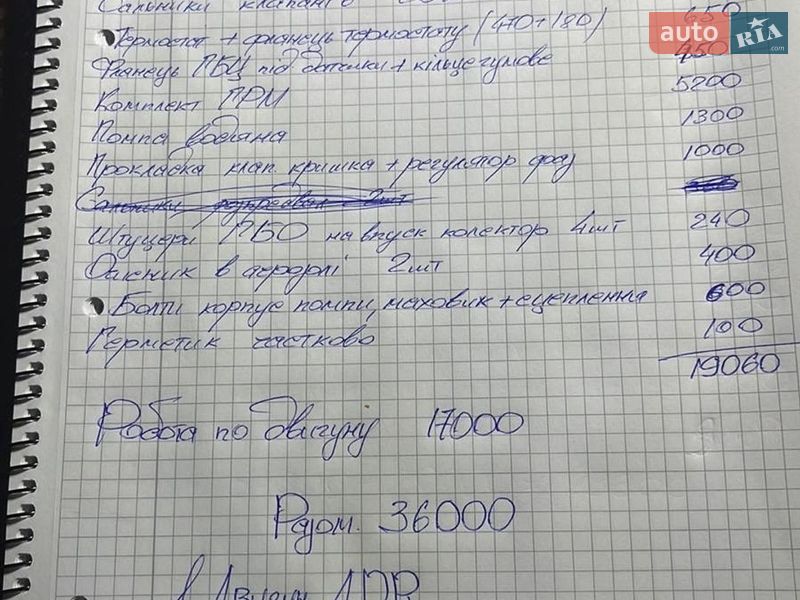 Сальники клапанів
Термостат + фланець термостату (470+180) 650
Фланець ГБЦ під датчики + кільце гумове 450
Комплект ГРМ 5200
Помпа водяна 1300
Прокладка клап. кришка + регулятор фаз 1000
Сальники розпредвал 2шт
Штуцери ГБО на впуск колектор 4шт 240
Датчик в аеродрлі 2шт 400
Болти корпус помпи, маховик + сцеплення 600
Герметик частково 100
19060
Робота по двигуну 17000
Разом. 36000
auto RIA .com